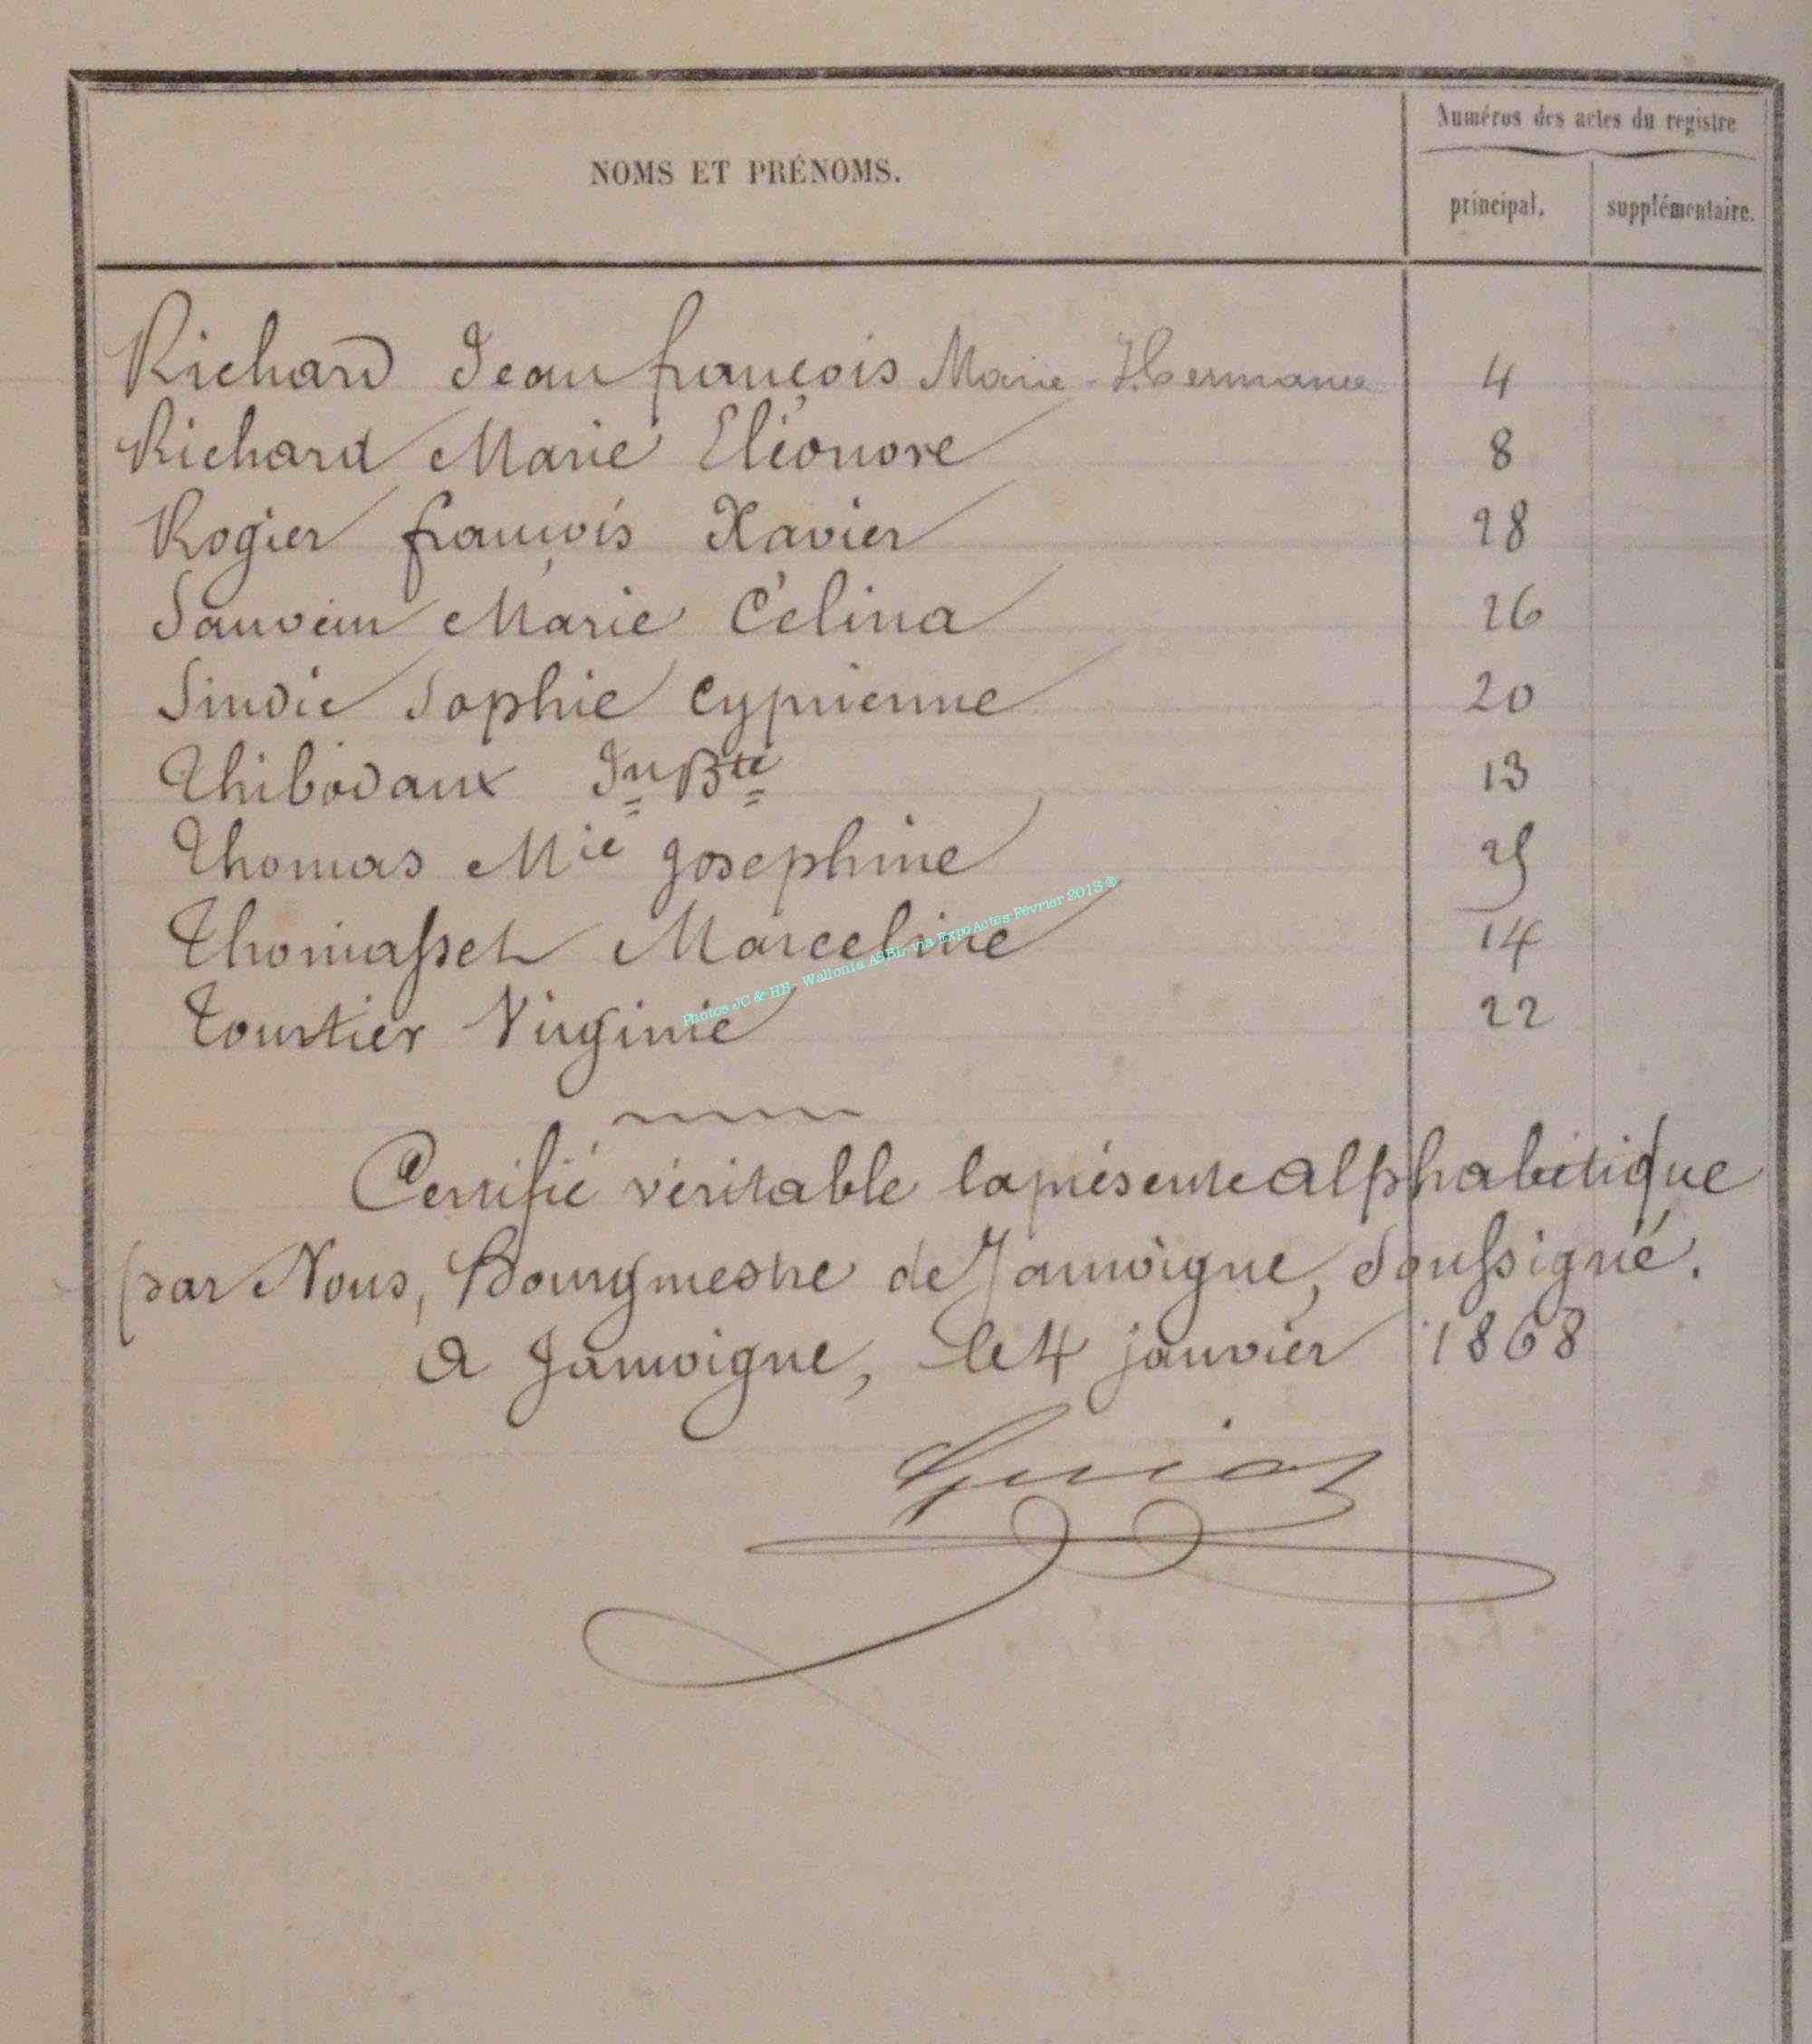 NOMS ET PRÉNOMS.
Numéros des actes du registre
principal.
supplémentaire.
Richard Jean françois Marie-Hermance 4
Richard Marie Eléonore 8
Rogier françois Xavier 28
Sauvein Marie Célina 26
Sindic Sophie Cyprienne 20
Thibodaux Jn Bte 13
Thomas Mie Josephine 25
Thomasset Marceline 14
Tourtier Virginie 22
Certifié véritable la présente alphabétique
par Nous, Bourgmestre de Jamoigne, Soussigné.
A Jamoigne, le 4 janvier 1868
Photos JC & HB - Wallonia ASBL via ExpoActes Février 2013 ®